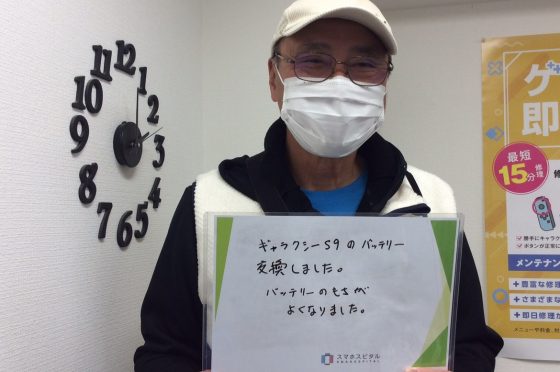 12
1
2
3
4
5
6
7
8
9
10
11
ギャラクシーS9のバッテリー
交換しました。
バッテリーのもちが
よくなりました。
スマホスピタル
SMAHOSPITAL
ゲ
即
最短
15分修理
修
勝手にキャラク
ボタンが正常に
メンテナン
+豊富な修理
+さまざまな
+即日修理が
メニューや料金、対